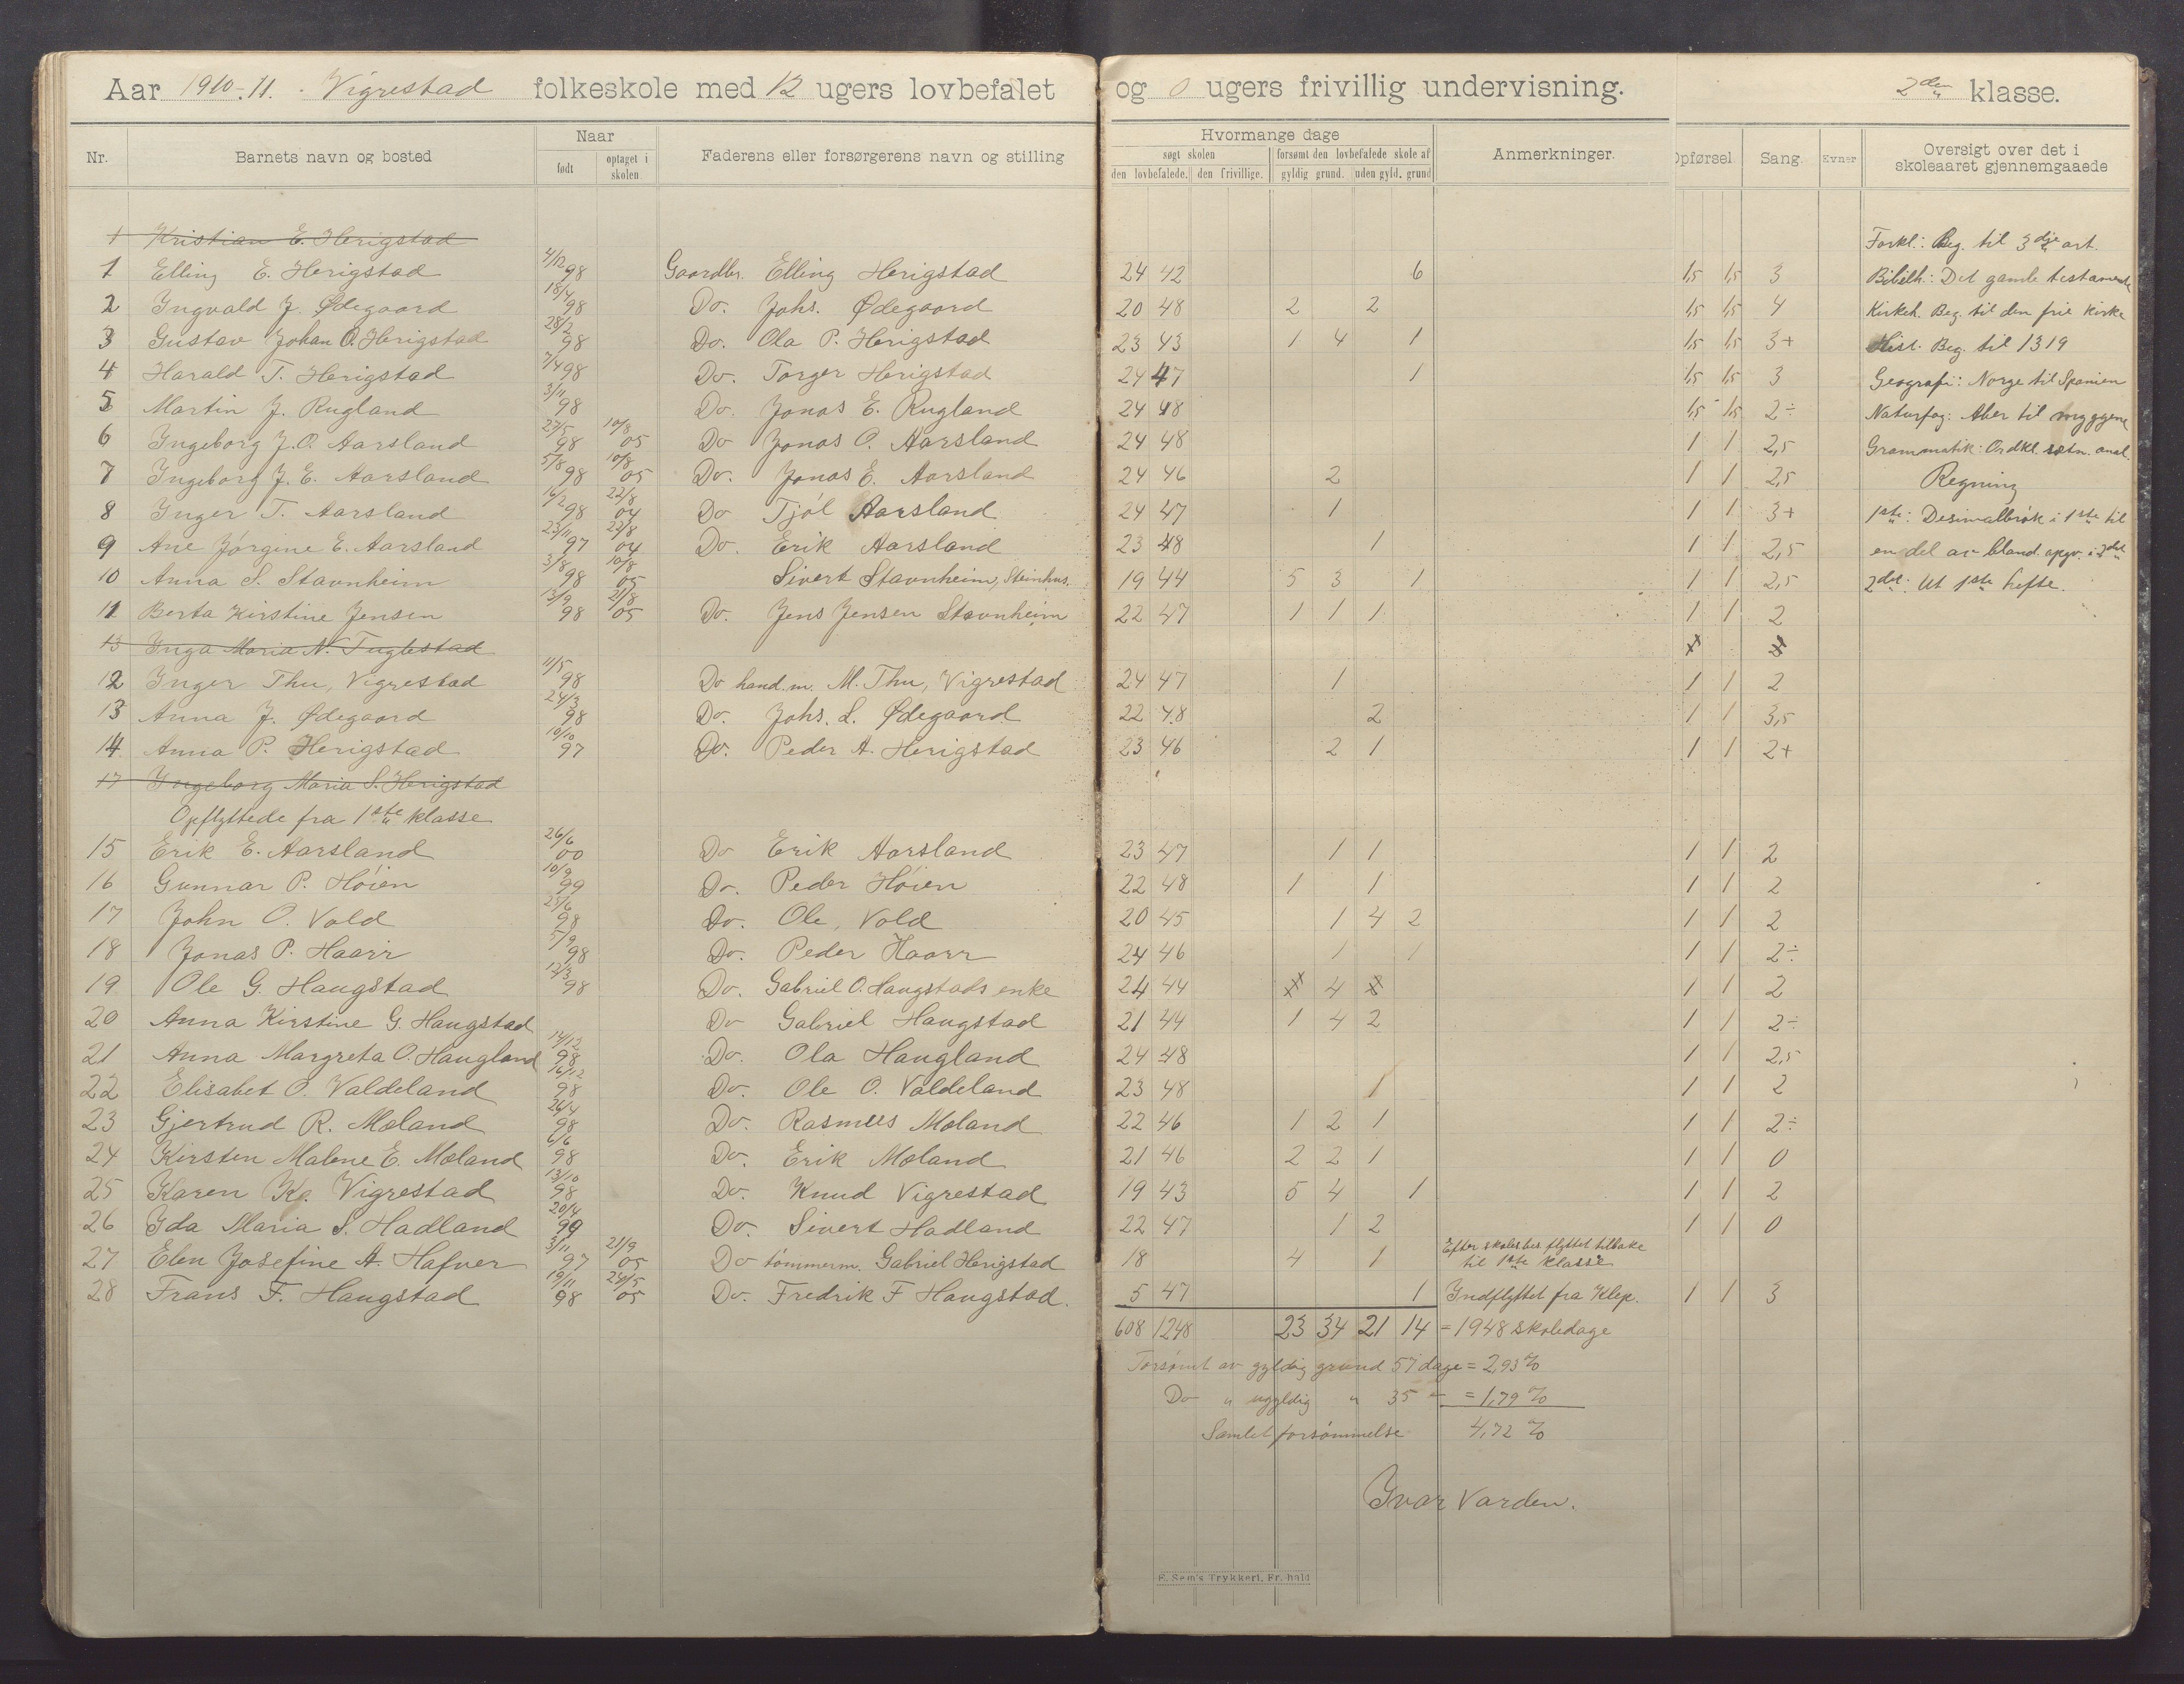 Aar 1910-11. Vigrestad folkeskole med 12 ugers lovbefalet og 0 ugers frivillig undervisning. 2den klasse.
Nr. Barnets navn og bosted Naar født optaget i skolen. Faderens eller forsørgerens navn og stilling Hvormange dage søgt skolen den lovbefalede. den frivillige. forsømt den lovbefalede skole af gyldig grund. uden gyld. grund Anmerkninger. Opførsel Sang. Evner Oversigt over det i skoleaaret gjennemgaaede
1 Kristian E. Herigstad Forkl.: Beg. til 3dje art.
1 Elling E. Herigstad 4/12 98 Gaardbr. Elling Herigstad 24 42 6 1,5 1,5 3 Bibelh.: Det gamle testamente
2 Ingvald J. Ødegaard 18/4 98 Do. Johs. Ødegaard 20 48 2 2 1,5 1,5 4 Kirkeh. Beg. til den frie kirke
3 Gustav Johan O. Herigstad 28/2 98 Do. Ola P. Herigstad 23 43 1 4 1 1,5 1,5 3+ Hist. Beg. til 1319
4 Harald T. Herigstad 7/4 98 Do. Torger Herigstad 24 47 1 1,5 1,5 3 Geografi: Norge til Spanien
5 Martin J. Rugland 3/11 98 Do. Jonas E. Rugland 24 48 1,5 1,5 2÷ Naturfag: Aber til myggene
6 Ingeborg J.O. Aarsland 27/5 98 10/8 05 Do Jonas O. Aarsland 24 48 1 1 2,5 Grammatik: Ordkl. sætn. anal.
7 Ingeborg J.E. Aarsland 5/8 98 10/8 05 Do. Jonas E. Aarsland 24 46 2 1 1 2,5 Regning
8 Inger T. Aarsland 16/2 98 22/8 04 Do Tjøl Aarsland 24 47 1 1 1 3+ 1ste: Desimalbrøk i 1ste til
9 Ane Jørgine E. Aarsland 23/11 97 22/8 04 Do. Erik Aarsland 23 48 1 1 1 2,5 en del av bland. opgv. i 2det
10 Anna S. Stavnheim 3/8 98 10/8 05 Sivert Stavnheim, Steinhus. 19 44 5 3 1 1 1 2,5 2det: Ut 1ste hefte.
11 Berta Kirstine Jensen 13/9 98 21/8 05 Do. Jens Jensen Stavnheim 22 47 1 1 1 1 1 2
13 Inga Maria N. Fuglestad
12 Inger Thu, Vigrestad 11/5 98 Do hand.m. M. Thu, Vigrestad 24 47 1 1 1 2
13 Anna J. Ødegaard 24/3 98 Do. Johs. L. Ødegaard 22 48 2 1 1 3,5
14 Anna P. Herigstad 10/10 97 Do. Peder A. Herigstad 23 46 2 1 1 1 2+
17 Ingeborg Maria S. Herigstad
Opflyttede fra 1ste klasse
15 Erik E. Aarsland 26/6 00 Do Erik Aarsland 23 47 1 1 1 1 2
16 Gunnar P. Høien 10/9 99 Do. Peder Høien 22 48 1 1 1 1 2
17 John O. Vold 25/6 98 Do. Ole, Vold 20 45 1 4 2 1 1 2
18 Jonas P. Haarr 5/9 98 Do. Peder Haarr 24 46 1 1 1 1 2÷
19 Ole G. Haugstad 12/3 98 Do. Gabriel O. Haugstads enke 24 44 4 1 1 2
20 Anna Kirstine G. Haugstad Do Gabriel Haugstad 21 44 1 4 2 1 1 2÷
21 Anna Margreta O. Haugland 14/12 98 Do. Ola Haugland 24 48 1 1 2,5
22 Elisabet O. Valdeland 16/12 98 Do. Ole O. Valdeland 23 48 1 1 1 2
23 Gjertrud R. Moland 24/4 98 Do. Rasmus Moland 22 46 1 2 1 1 1 2÷
24 Kirsten Malene E. Moland 6/6 98 Do. Erik Moland 21 46 2 2 1 1 1 0
25 Karen K. Vigrestad 13/10 98 Do. Knud Vigrestad 19 43 5 4 1 1 1 2
26 Ida Maria S. Hadland 20/4 99 Do. Sivert Hadland 22 47 1 2 1 1 0
27 Elen Josefine A. Hafver 3/11 97 21/9 05 Do tømmerm. Gabriel Herigstad 18 4 1 Efter skolebes. flyttet tilbake til 1ste klasse
28 Frans F. Haugstad 19/11 98 24/5 05 Do. Fredrik F Haugstad. 5 47 1 Indflyttet fra Klep. 1 1 3
608 1248 23 34 21 14 = 1948 skoledage
Forsømt av gyldig grund 57 dage = 2,93 %
Do " ugyldig " 35 " = 1,79 %
Samlet forsømmelse 4,72 %
Ivar Varden.
E. Sem's Trykkeri, Fr.hald